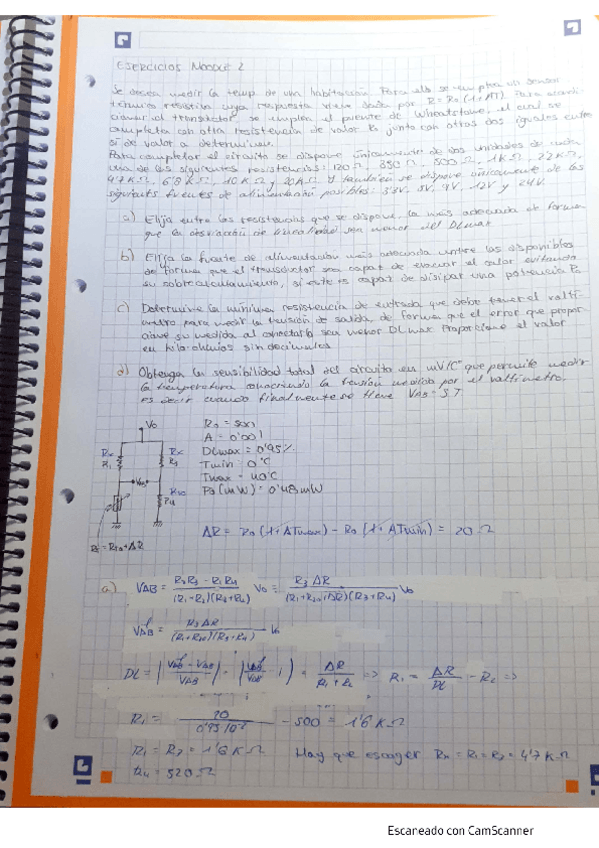 EJERCICIOS BLOQUE 2
Se desea medir la temp de una habitación. Para ello se emplea un sensor
resistivo cuya respuesta viene dada por R = R0 (1+AT). Para
el transductor, se emplea el puente de Wheatstone, el cual se
completa con otra resistencia de valor R0 junto con otras dos iguales entre
sí de valor a determinar.
Para completar el circuito se dispone únicamente de dos unidades de cada
una de las siguientes resistencias: 120Ω, 350Ω, 500Ω, 1KΩ, 2'2KΩ,
4'7KΩ, 6'8KΩ, 10KΩ y 20KΩ. Y también se dispone únicamente de las
siguientes fuentes de alimentación posibles: 3'3V, 5V, 9V, 12V y 24V.
a) Elija entre las resistencias que se dispone, la más adecuada de forma
que la desviación de linealidad sea menor del DLmax
b) Elija la fuente de alimentación más adecuada entre las disponibles
de forma que el transductor sea capaz de evacuar el calor evitando
su sobrecalentamiento, si este es capaz de disipar una potencia P0
c) Determine la mínima resistencia de entrada que debe tener el voltí-
metro para medir la tensión de salida, de forma que el error que propor-
cione su medida al conectarlo sea menor DLmax. Proporcione el valor
en kilo-ohmios sin decimales
d) Obtenga la sensibilidad total del circuito en mV/Cº que permite medir
la temperatura conociendo la tensión medida por el voltímetro,
es decir cuando finalmente se tiene VAB = S.T
V0
R0 = 500
A = 0'001
DLmax = 0'95%
Tmin: 0ºC
Tmax = 40ºC
P0 (mW) = 0'48mW
Rx
R1
Rx
R3
R4
ΔR = R0 (1+ATmax) - R0 (1+ATmin) = 20 Ω
a) VAB = R2R3 - R1R4 / (R1+R2)(R3+R4) V0 = R3 ΔR / (R3+R4) V0
DL = ΔR / R1+R2 => R1 = ΔR / DL - R2 =>
R1 = 20 / 0'95·10^-2 - 500 = 1'6 KΩ
R1 = R3 = 1'6 KΩ Hay que escoger Rx = R1 = R3 = 4'7 KΩ
Escaneado con CamScanner